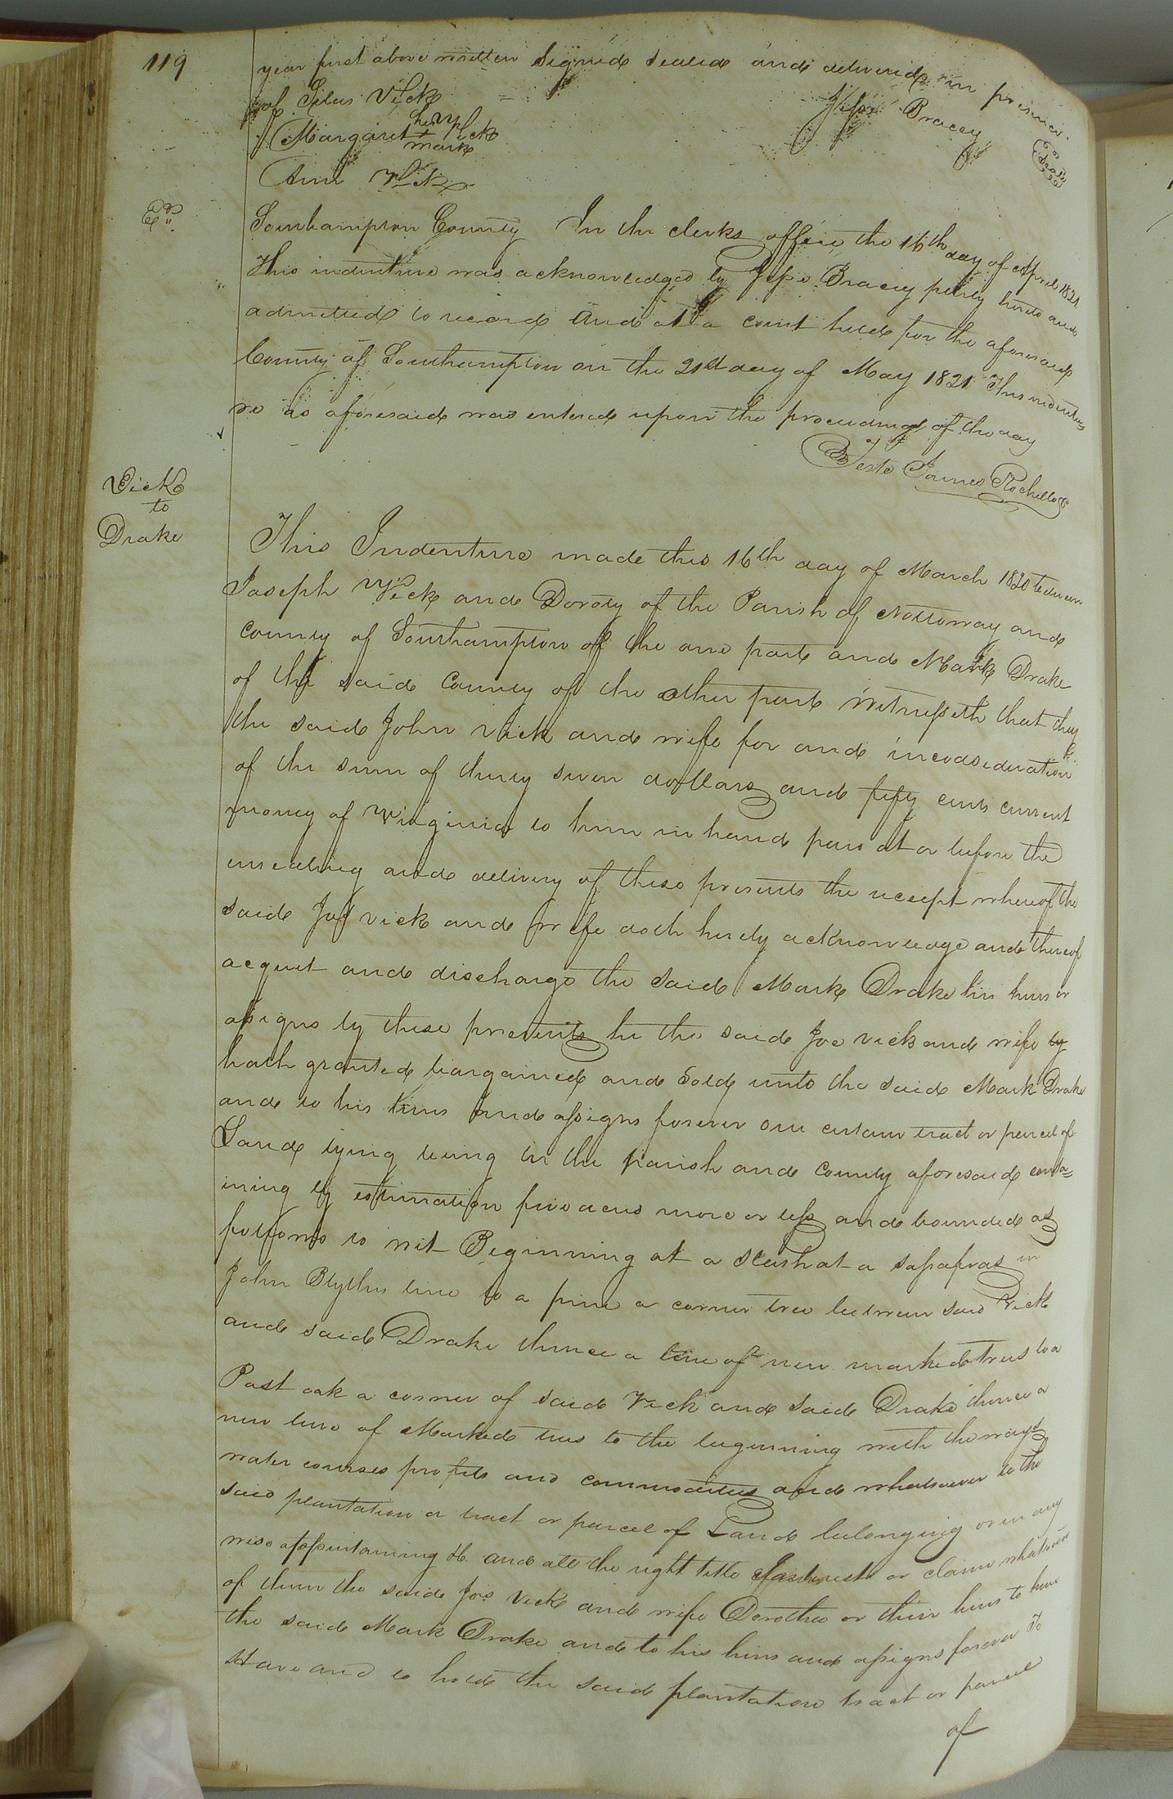 119
year first above written Signed sealed and delivered in presence
of Silas Vick
Jesse Bracey
Margaret her x mark Vick
Ann Vick
Seal
Exd.
Southampton County In the clerks office the 16th day of April 1821
This indenture was acknowledged by Jesse Bracey party hereto and
admitted to record And at a court held for the aforesaid
County of Southampton on the 21st day of May 1821 This indentu
re as aforesaid was entered upon the proceedings of the day
Teste James Rochelle
Vick
to
Drake
This Indenture made this 16th day of March 1820 between
Joseph Vick and Doroty of the Parish of Nottoway and
County of Southampton of the one part and Mark Drake
of the said County of the other part Witnesseth that they
the said John Vick and wife for and inconsideration
of the sum of thirty seven dollars and fifty cents current
money of Virginia to him in hand paid at or before the
ensealing and delivery of these presents the receipt whereof the
said Jos Vick and wife doth hereby acknowledge and thereof
acquit and discharge the said Mark Drake his heirs or
assigns by these presents he the said Jos vick and wife by
hath granted bargained and Sold unto the said Mark Drake
and to his heirs and assigns forever one certain tract or parcel of
Land lying being in the parish and county aforesaid conta=
ining by estimation five acres more or less and bounded as
follows to wit Beginning at a at a sassafras in
John Blythes line to a pine a corner tree between said Vick
and said Drake thence a line of new marked trees to a
Post oak a corner of said Vick and said Drake thence a
new line of Marked trees to the beginning with the ways
water courses profits and commodities and whatsoever to the
said plantation or tract or parcel of Land belonging or in any
wise appertaining & and all the right title Interest or claim whatsoever
of them the said Jos Vick and wife Dorothee or their heirs to him
the said Mark Drake and to his heirs and assigns forever To
Have and to hold the said plantation tract or parcel
of